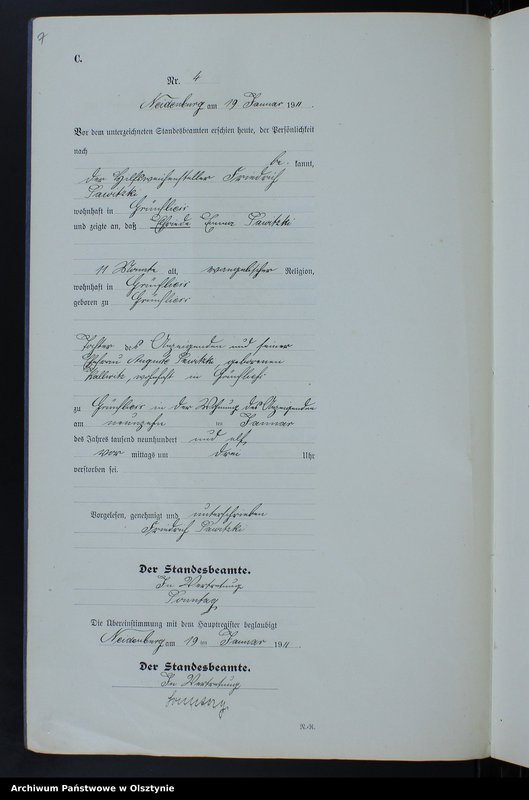 C.
Nr. 4
Neidenburg am 19 Januar 1911.
Vor dem unterzeichneten Standesbeamten erschien heute, der Persönlichkeit
nach
be kannt,
der Hilfsweichensteller Friedrich
Sawitzki
wohnhaft in Grünfließ
und zeigte an, daß Emma Sawitzki
11 Monate alt, evangelischer Religion,
wohnhaft in Grünfließ
geboren zu Grünfließ
Tochter des Anzeigenden und seiner
Ehefrau Auguste Sawitzki geborenen
wohnhaft in Grünfließ
zu Grünfließ in der Wohnung des Anzeigenden
am neunzehn ten Januar
des Jahres tausend neunhundert und elf
vor mittags um drei Uhr
verstorben sei.
Vorgelesen, genehmigt und unterschrieben
Friedrich Sawitzki
Der Standesbeamte.
In Vertretung
Sonntag
Die Übereinstimmung mit dem Hauptregister beglaubigt
Neidenburg am 19 ten Januar 1911.
Der Standesbeamte.
In Vertretung
Sonntag
N.-R.
Archiwum Państwowe w Olsztynie